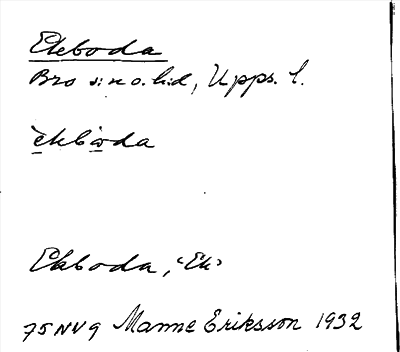 Ekboda
Bro s:n o. h:d, Upps. l.
èkbòda
Ekboda, "Ek"
75NV9 Manne Eriksson 1932